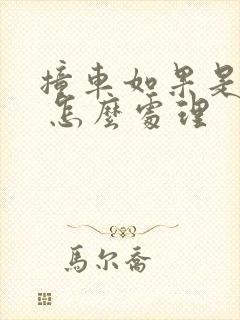 撞車如果是
怎麼處理
馬尔喬